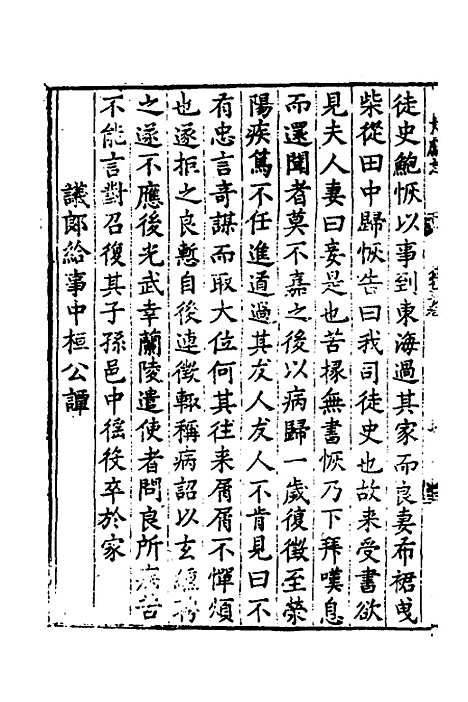 徒史鮑恢以事到東海過其家而良妻布裙曳
柴從田中歸恢告曰我司徒史也故来受書欲
見夫人妻曰妾是也苦掾無書恢乃下拜嘆息
而還聞者莫不嘉之後以病歸一歲復徵至滎
陽疾篤不任進道過其友人友人不肯見曰不
有忠言奇謀而取大位何其往来屑屑不憚煩
也遂拒之良慙自後連徵輒稱病詔以玄纁聘
之遂不應後光武幸蘭陵遣使者問良所疾苦
不能言對召復其子孫邑中徭役卒於家
議郎給事中桓公譚